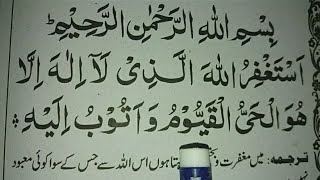 بِسْمِ اللهِ الرَّحْمٰنِ الرَّحِيْمِ
اَسْتَغْفِرُ اللهَ الَّذِىْ لَآ اِلٰهَ اِلَّا
هُوَ الْحَىُّ الْقَيُّوْمُ وَ اَتُوْبُ اِلَيْهِ
ترجمہ: میں مغفرت و ہتا ہوں اس اللہ سے جس کے سوا کوئی معبود